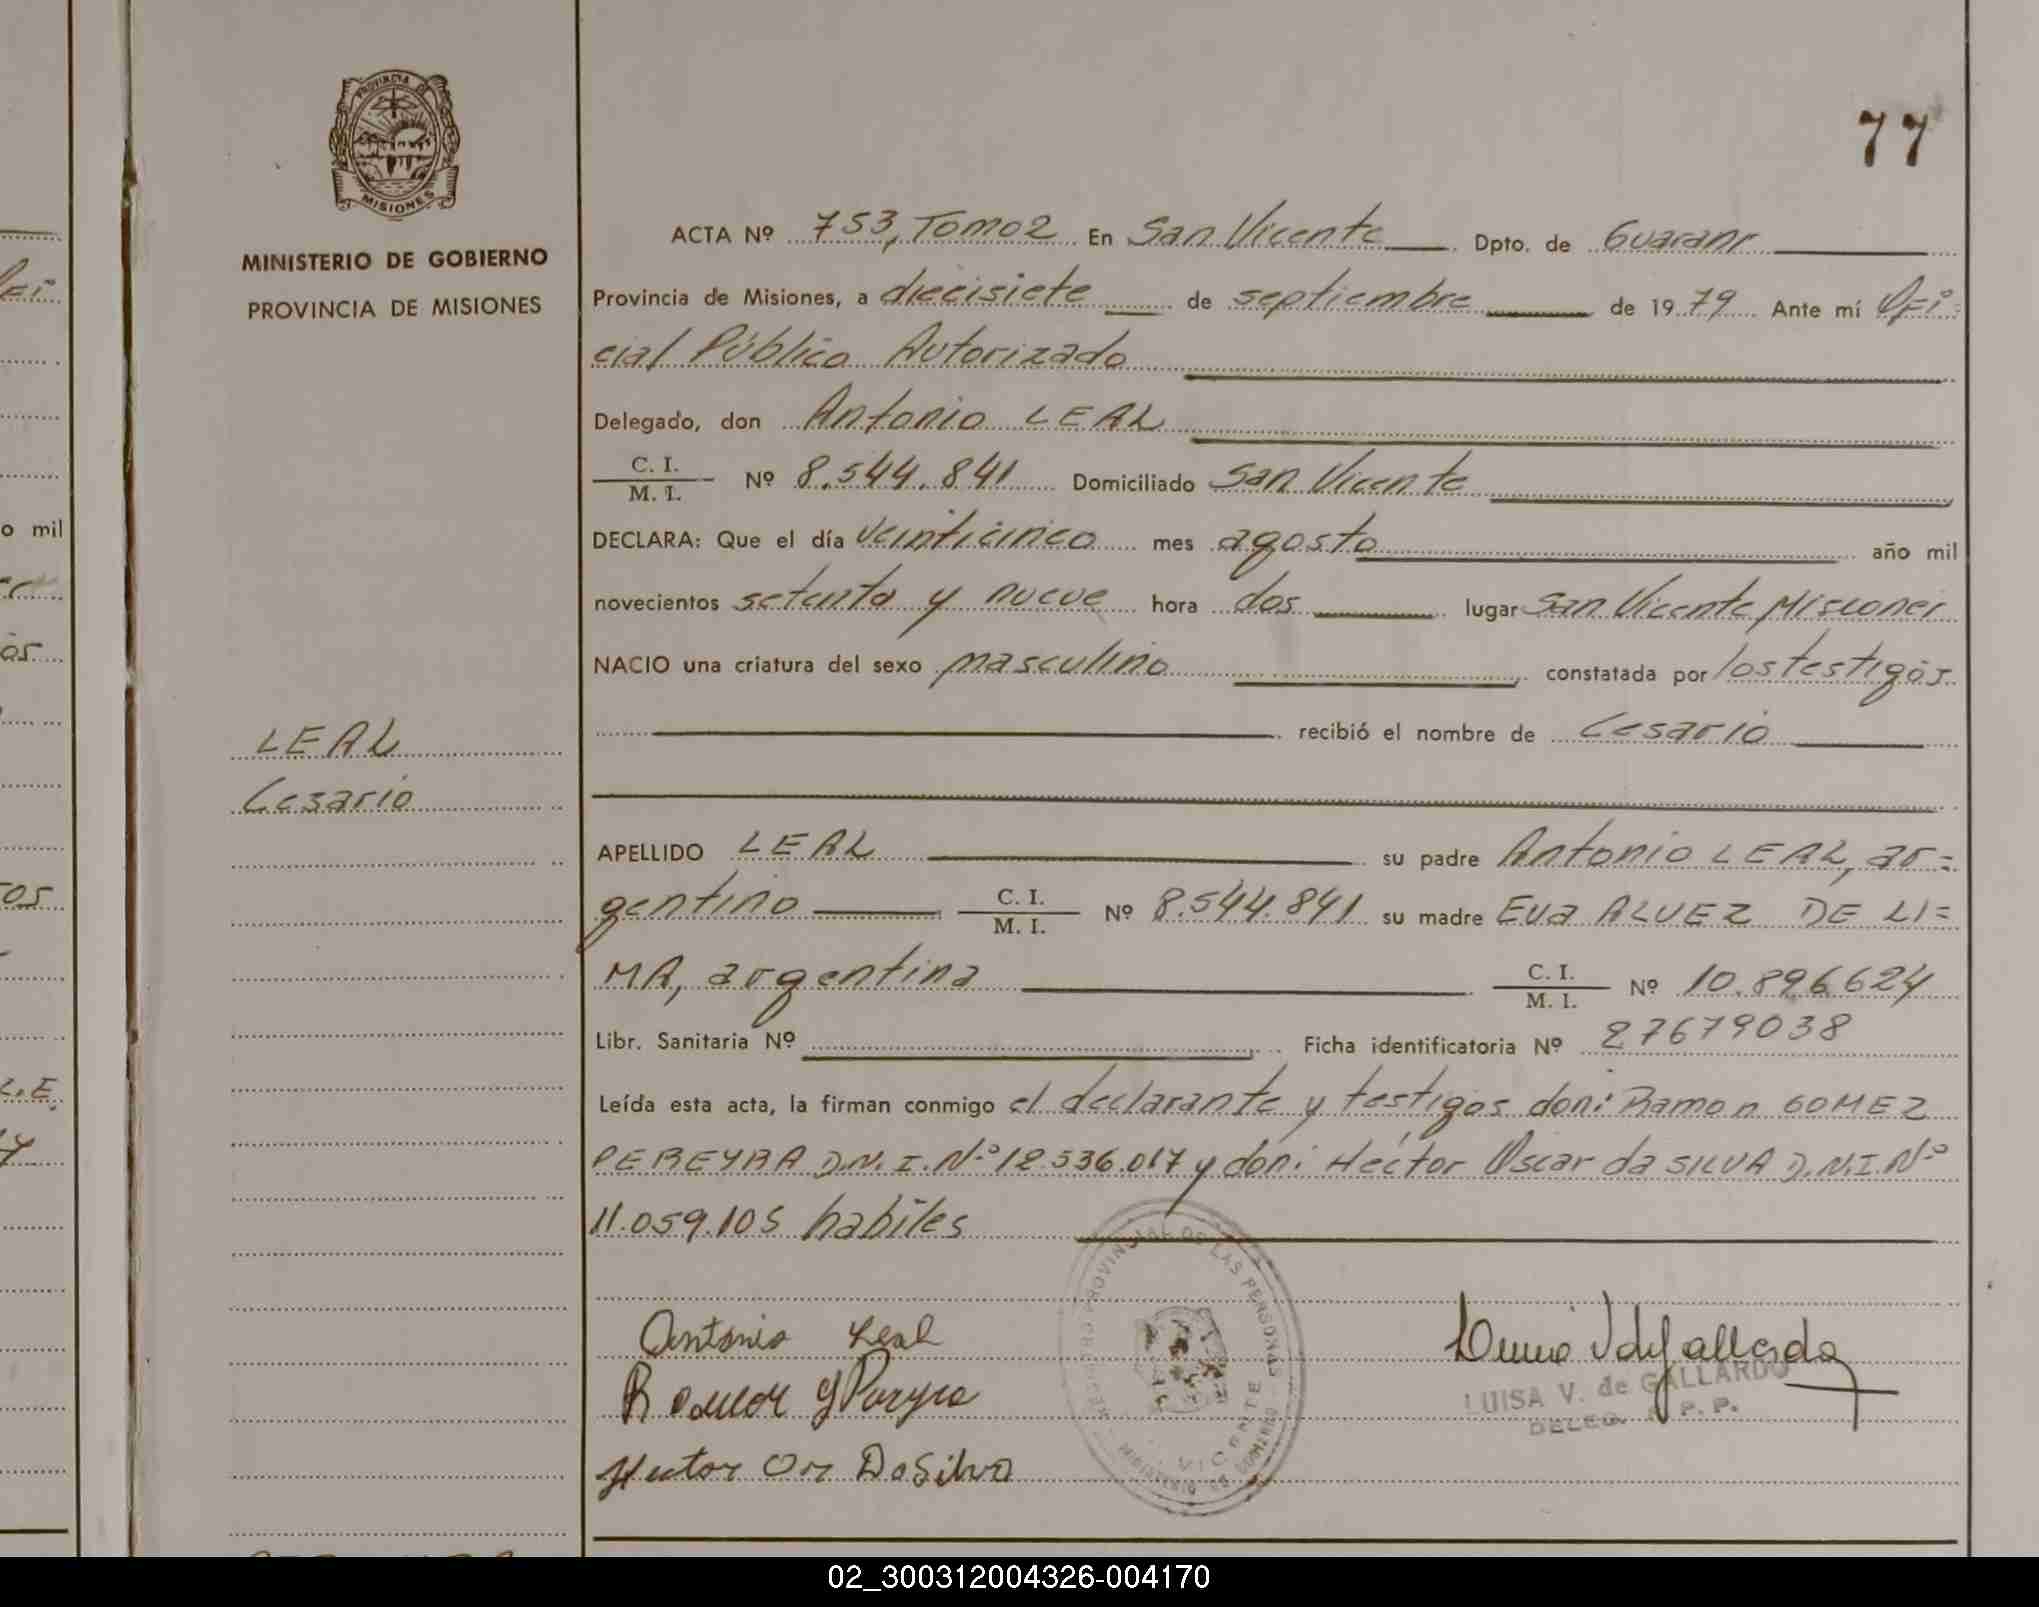 PROVINCIA DE
MISIONES
MINISTERIO DE GOBIERNO
PROVINCIA DE MISIONES
LEAL
Cesario
77
ACTA Nº 753, Tomo 2 En San Vicente Dpto. de Guaraní
Provincia de Misiones, a diecisiete de septiembre de 1979 Ante mí Ofi=
cial Público Autorizado
Delegado, don Antonio LEAL
C. I.
M. I. Nº 8.544.841 Domiciliado San Vicente
DECLARA: Que el día veinticinco mes agosto año mil
novecientos setenta y nueve hora dos lugar San Vicente Misiones
NACIO una criatura del sexo masculino constatada por los testigos
recibió el nombre de Cesario
APELLIDO LEAL su padre Antonio LEAL, ar=
gentino C. I.
M. I. Nº 8.544.841 su madre Eva ALVEZ DE LI=
MA, argentina C. I.
M. I. Nº 10.896.624
Libr. Sanitaria Nº Ficha identificatoria Nº 27679038
Leída esta acta, la firman conmigo el declarante y testigos don: Ramon GOMEZ
PEREYRA D.N.I. N.º 12.536.017 y don: Héctor Oscar da SILVA D.N.I. Nº
11.059.105 habiles
Antonio Leal
Hector Da Silva
REGISTRO PROVINCIAL DE LAS PERSONAS
VICENTE
LUISA V. de GALLARDO
DELEG. P. P.
o mil
02_300312004326-004170